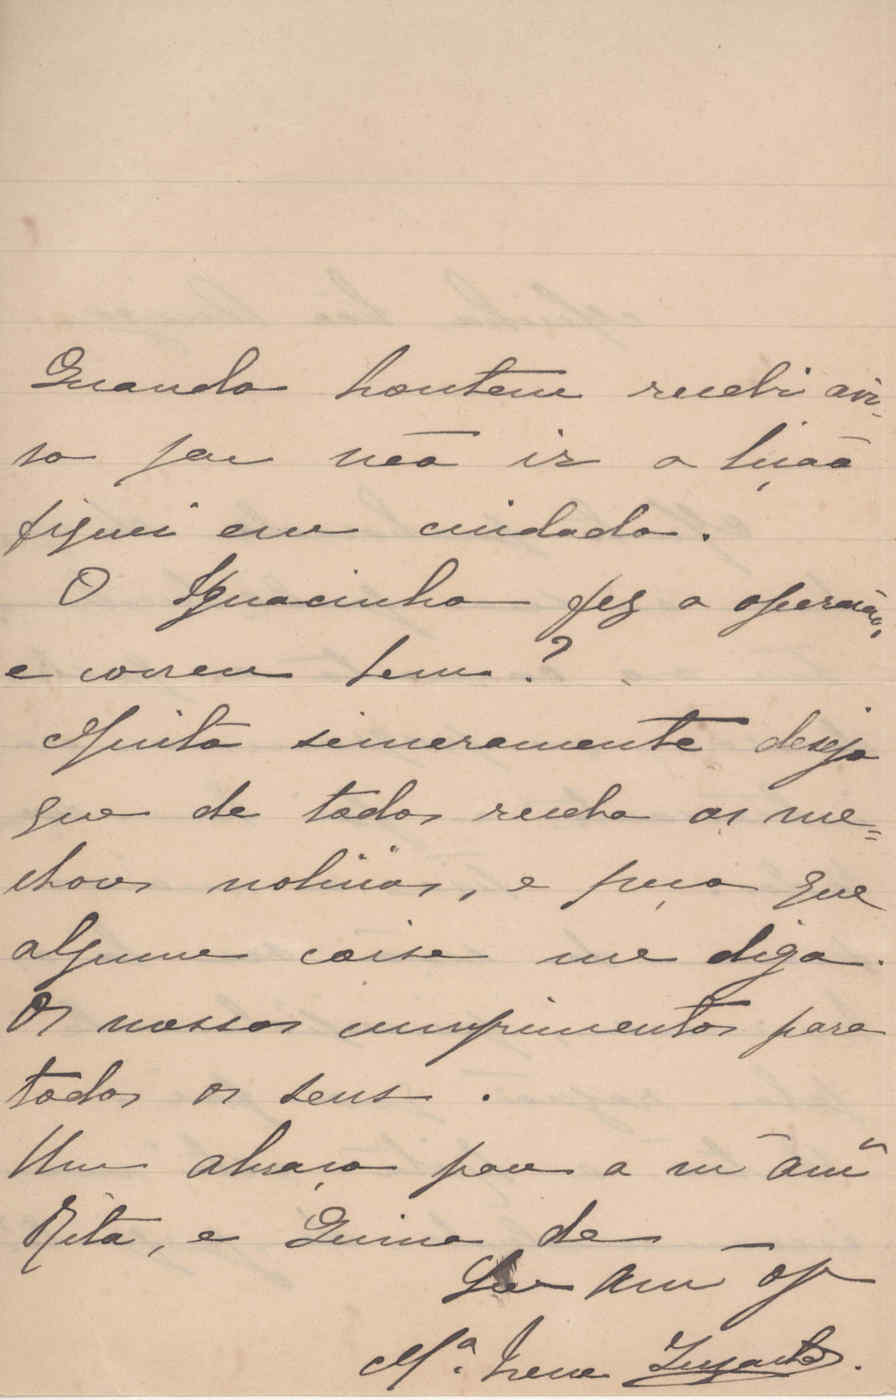 Quando hontem recebi avi-
so par não ir a lição
fiquei em cuidado.
O Ignacinho fez a operação,
e correu bem?
Muito sinceramente desejo
que de todos receba as me=
lhores noticias, e peço que
alguma coisa me diga.
Os nossos cumprimentos para
todos os seus.
Um abraço para a m
Rita, e Guima de
Sua
Mª. Irene